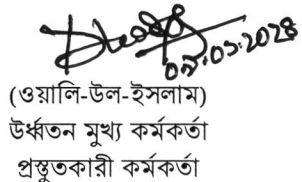 ০৪.০১.২০২৪
(ওয়ালি-উল-ইসলাম)
উর্ধ্বতন মুখ্য কর্মকর্তা
প্রস্তুতকারী কর্মকর্তা